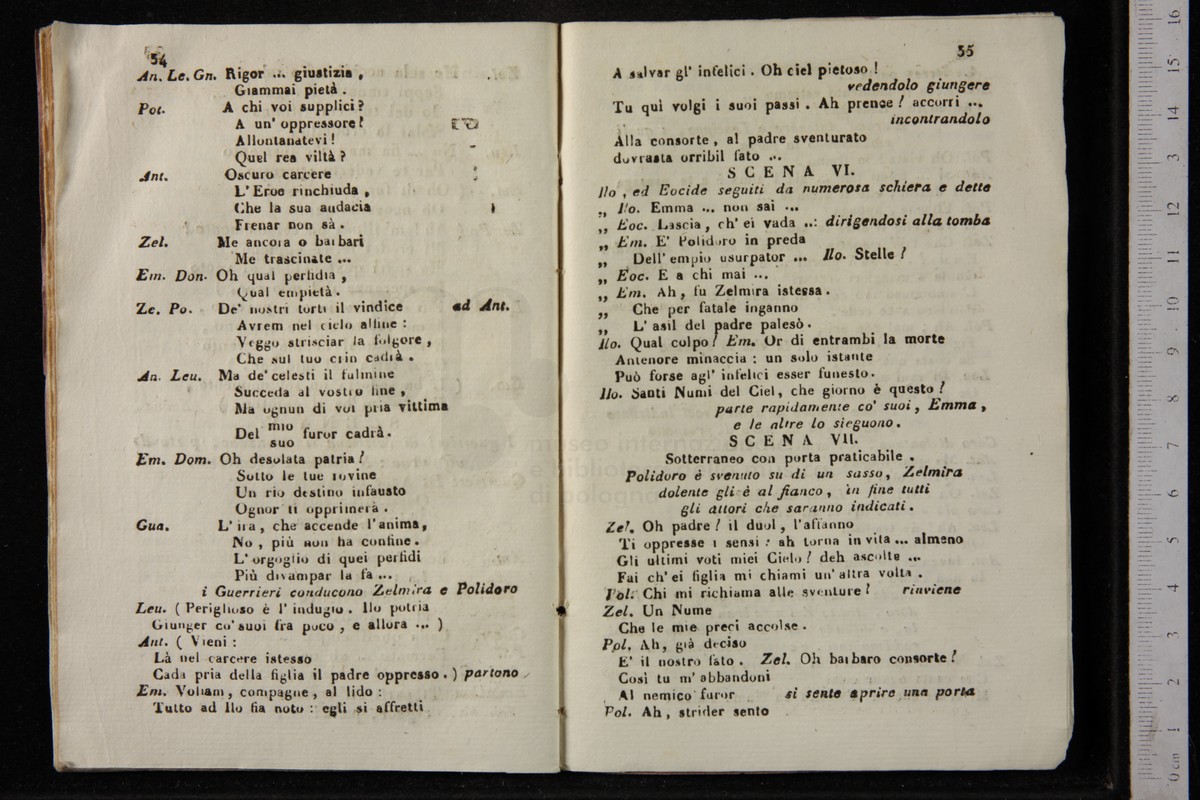 34
An. Le. Gn. Rigor ... giustizia ,
Giammai pietà .
Pol. A chi voi supplici ?
A un' oppressore !
Allontanatevi !
Quel rea viltà ?
Ant. Oscuro carcere
L' Eroe rinchiuda ,
Che la sua audacia
Frenar non sà .
Zel. Me ancora o barbari
Me trascinate ...
Em. Don. Oh qual perfidia ,
Qual empietà .
Ze. Po. De' nostri torti il vindice ad Ant.
Avrem nel cielo alfine :
Veggo strisciar la folgore ,
Che sul tuo crin cadrà .
An. Leu. Ma de' celesti il fulmine
Succeda al vostro fine ,
Ma ognun di voi pria vittima
Del mio furor cadrà .
suo
Em. Dom. Oh desolata patria !
Sotto le tue rovine
Un rio destino infausto
Ognor ti opprimerà .
Gua. L' ira , che accende l' anima ,
No , più non ha confine .
L' orgoglio di quei perfidi
Più divampar la fa ...
i Guerrieri conducono Zelmira e Polidoro
Leu. ( Periglioso è l' indugio . Ilo potria
Giunger co' suoi fra poco , e allora ... )
Ant. ( Vieni :
Là nel carcere istesso
Cada pria della figlia il padre oppresso . ) partono
Em. Voliam , compagne , al lido :
Tutto ad Ilo fia noto : egli si affretti
35
A salvar gl' infelici . Oh ciel pietoso !
vedendolo giungere
Tu quì volgi i suoi passi . Ah prence ! accorri ...
incontrandolo
Alla consorte , al padre sventurato
dovrasta orribil fato ...
SCENA VI.
Ilo , ed Eocide seguiti da numerosa schiera e dette
,, Ilo. Emma ... non sai ...
,, Eoc. Lascia , ch' ei vada ... dirigendosi alla tomba
,, Em. E' Polidoro in preda
,, Dell' empio usurpator ... Ilo. Stelle !
,, Eoc. E a chi mai ...
,, Em. Ah , fu Zelmira istessa .
,, Che per fatale inganno
,, L' asil del padre palesò .
Ilo. Qual colpo ! Em. Or di entrambi la morte
Antenore minaccia : un solo istante
Può forse agl' infelici esser funesto .
Ilo. Santi Numi del Ciel , che giorno è questo !
parte rapidamente co' suoi , Emma ,
e le altre lo sieguono .
SCENA VII.
Sotterraneo con porta praticabile .
Polidoro è svenuto su di un sasso , Zelmira
dolente gli è al fianco , in fine tutti
gli attori che saranno indicati .
Zel. Oh padre ! il duol , l' affanno
Ti oppresse i sensi : ah torna in vita ... almeno
Gli ultimi voti miei Cielo ! deh ascolta ...
Fai ch' ei figlia mi chiami un' altra volta .
Pol. Chi mi richiama alle sventure ! rinviene
Zel. Un Nume
Che le mie preci accolse .
Pol. Ah , già deciso
E' il nostro fato . Zel. Oh barbaro consorte !
Così tu m' abbandoni
Al nemico furor si sente aprire una porta
Pol. Ah , strider sento